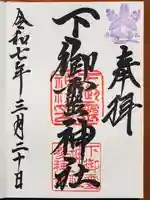 奉拝
下御霊神社
令和七年三月二十日